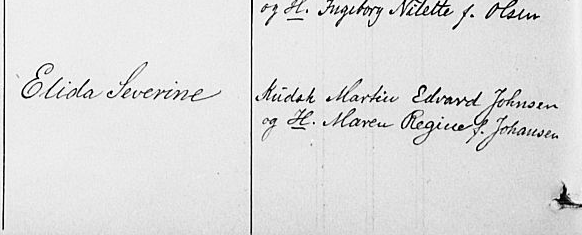 og H. Ingeborg Nilette f. Olsen
Elida Severine
Kudsk Martin Edvard Johnsen
og H. Maren Regine f. Johansen